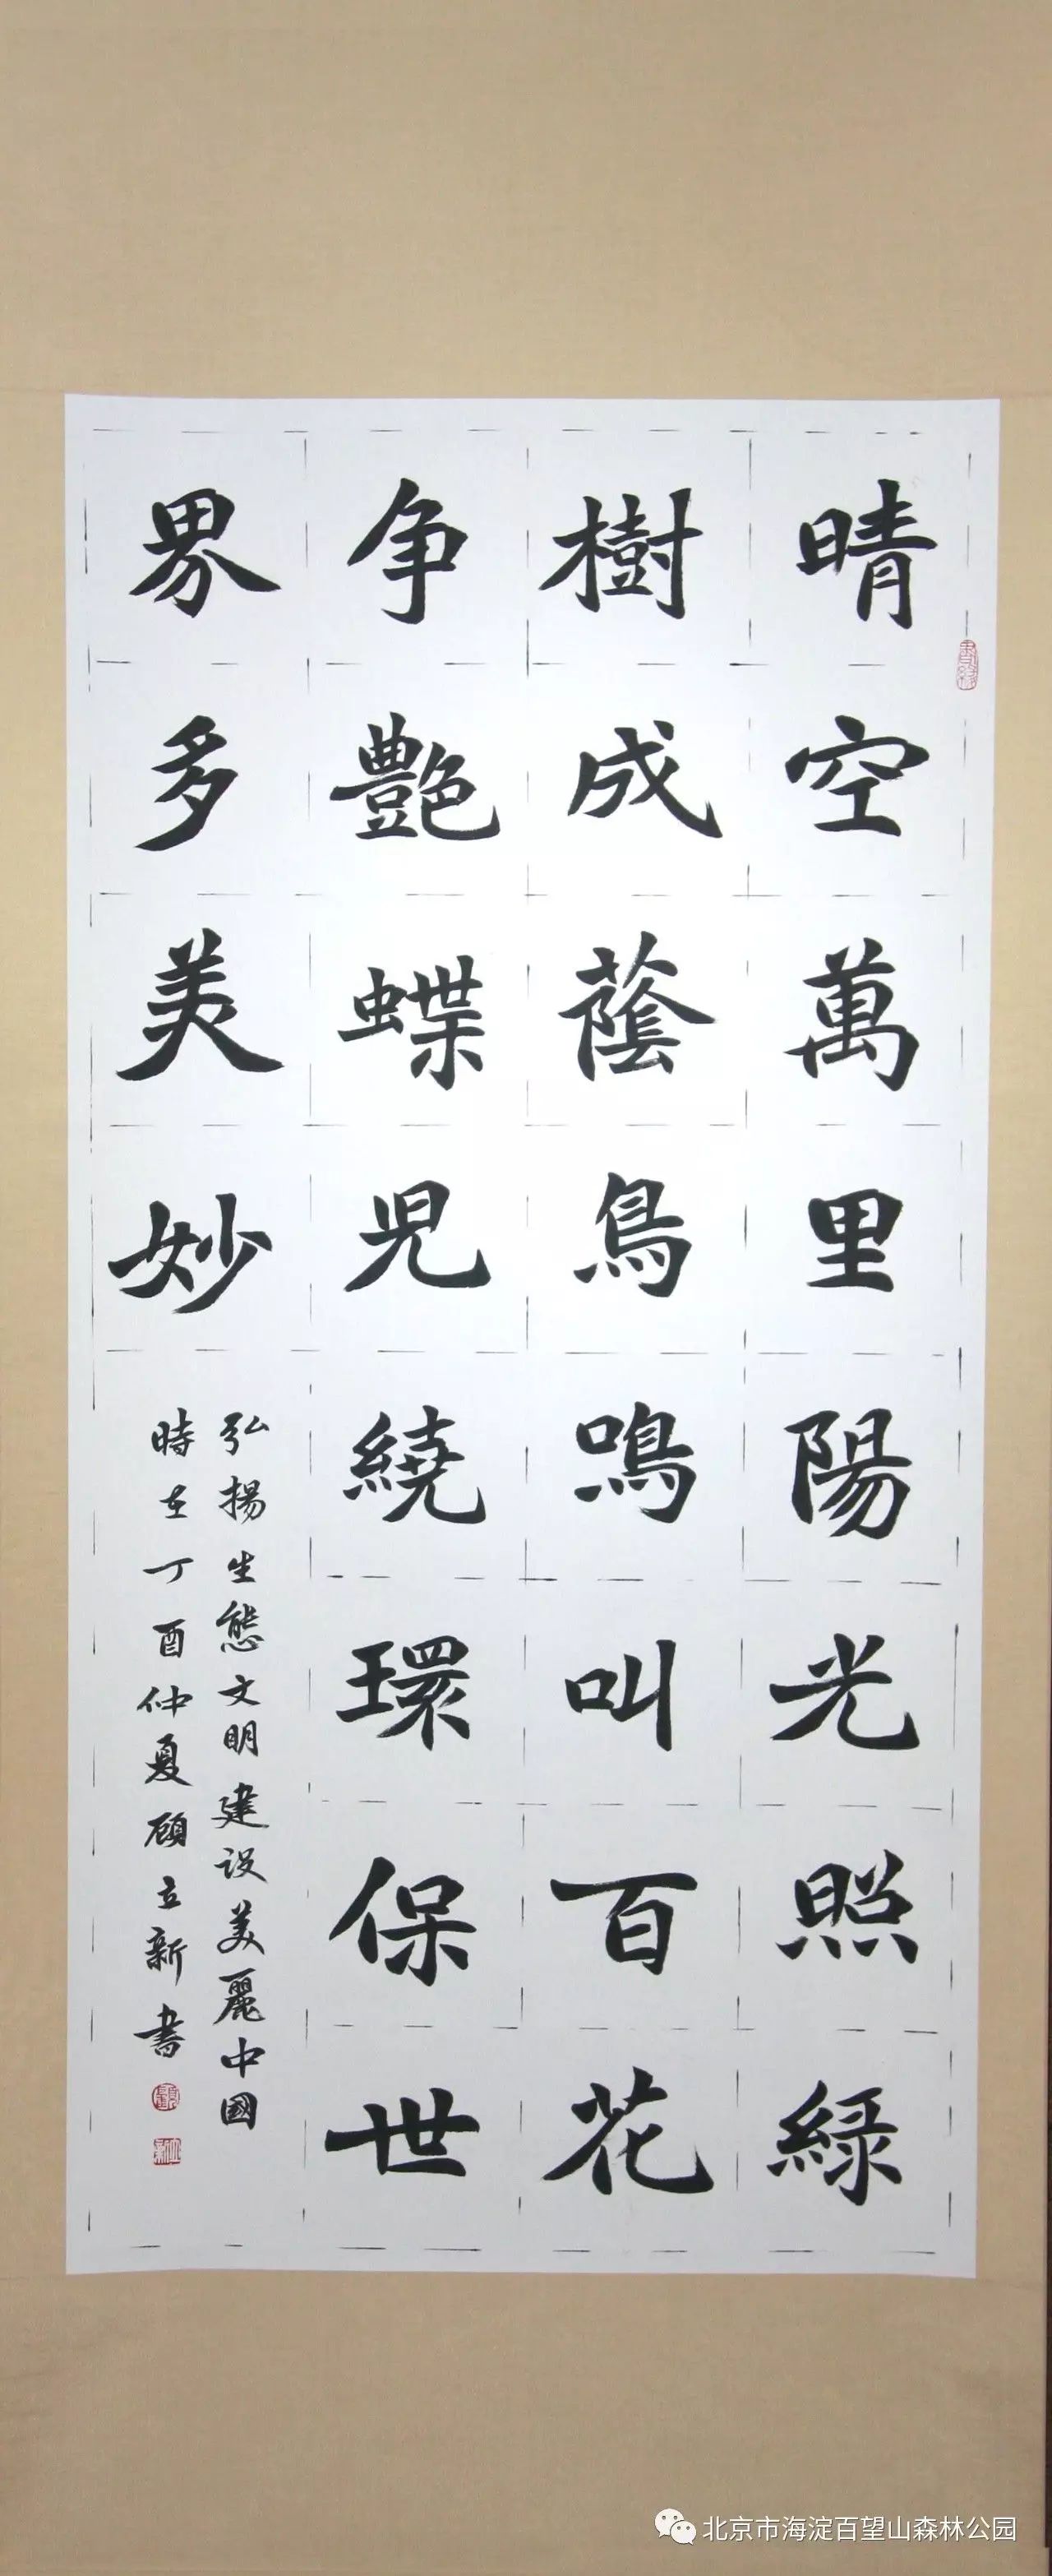 晴空萬里陽光照緑
樹成蔭鳥鳴叫百花
争艷蝶兒繞環保世
界多美妙
弘揚生態文明建设美麗中國
時在丁酉仲夏顾立新書
北京市海淀百望山森林公园